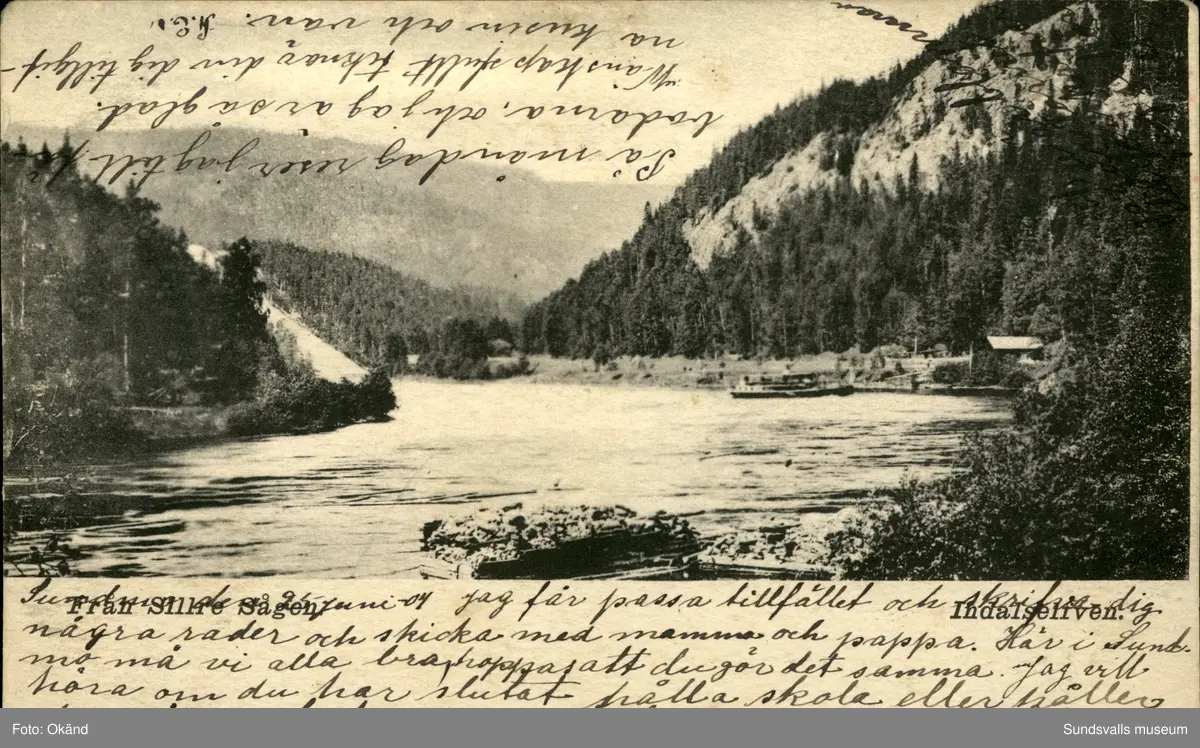 Från Sillre Sågen. Indalselfven.
Sundmo den 25 juni -04 jag får passa tillfället och skrifva dig
några rader och skicka med mamma och pappa. Här i Sund-
mo må vi alla bra, hoppas att du gör det samma. Jag vill
höra om du har slutat hålla skola eller håller
På måndag reser jag till f
bodarna, och jag är så glad.
Wänskapsfullt teknar din dig tillgif-
na kusin och vän.
Foto: Okänd
Sundsvalls museum